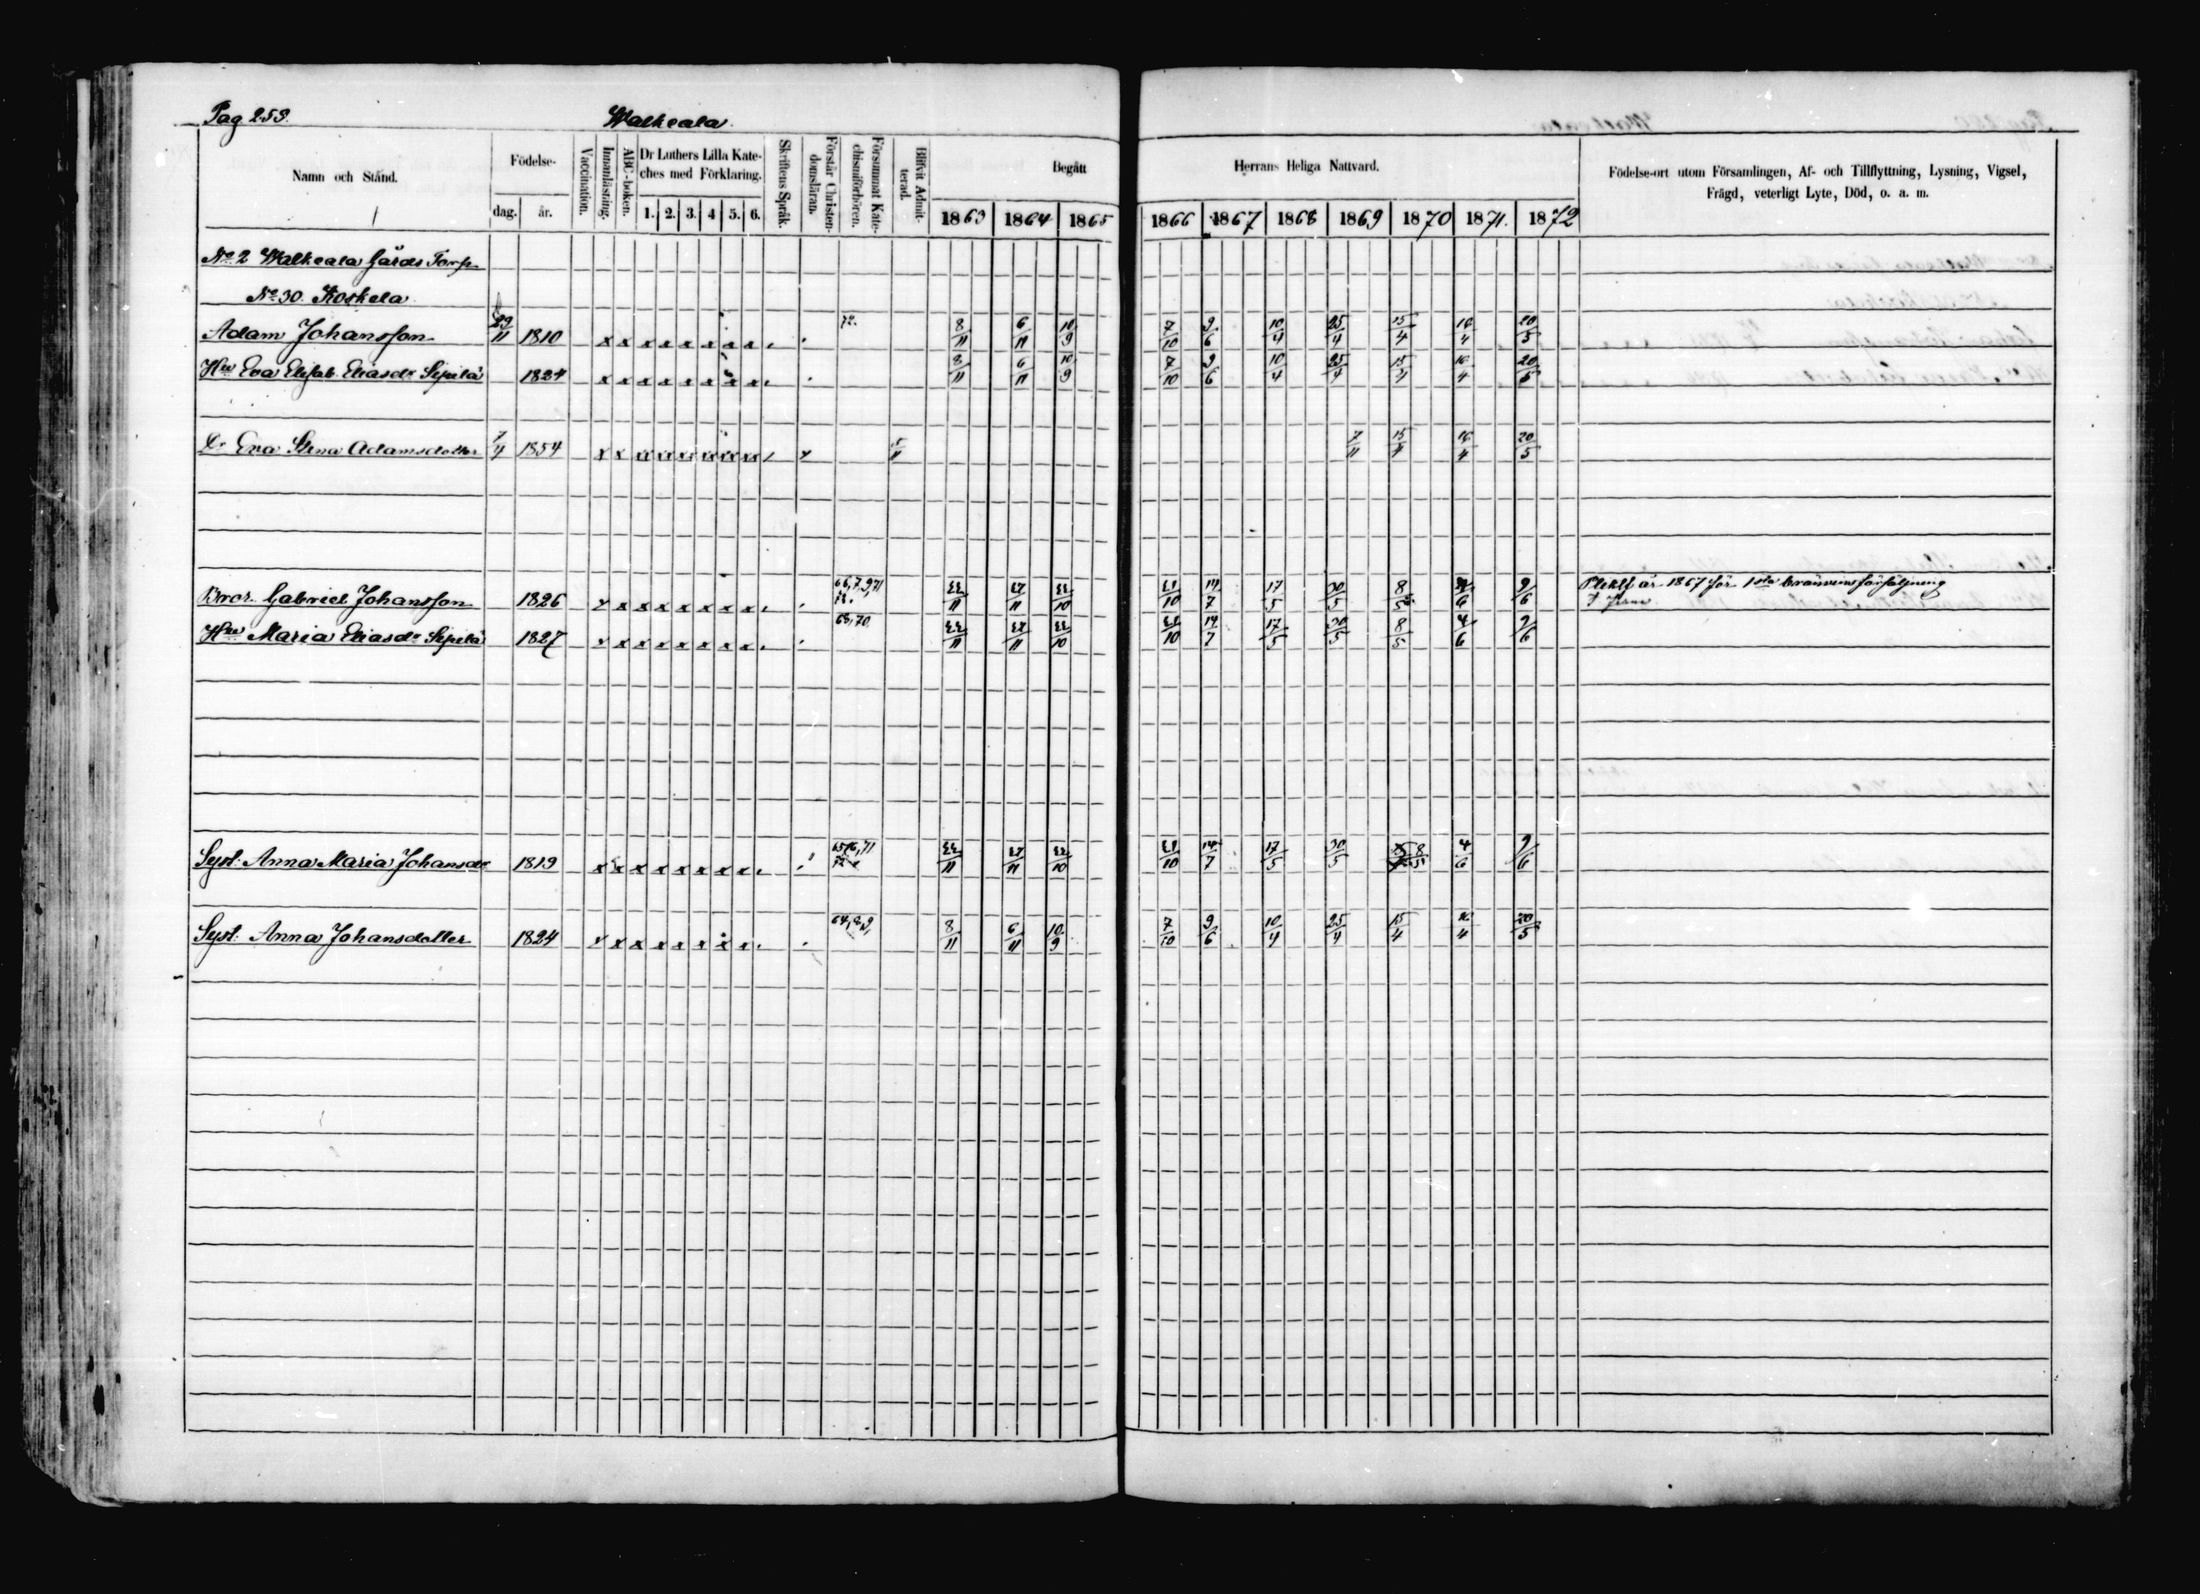 Pag 253. Walkeala
Namn och Stånd. Födelse- dag. år. Vaccination. Innanläsning. ABC-boken. Dr Luthers Lilla Kateches med Förklaring. 1. 2. 3. 4 5. 6. Skriftens Språk. Förstår Christendomsläran. Försummat Katechismiförhören. Blifvit Admitterad. Begått 1863 1864 1865 Herrans Heliga Nattvard. 1866 1867 1868 1869 1870 1871. 1872 Födelse-ort utom Församlingen, Af- och Tillflyttning, Lysning, Vigsel,
Frägd, veterligt Lyte, Död, o. a. m.
No 2 Walkeala Gårds Torp
No 30. Koskela
Adam Johansson 29/11 1810 x x x x x x x x 72. 8/11 6/11 10/9 7/10 9/6 10/4 25/4 15/4 16/4 20/5
Hu Eva Elisab. Eliasdr Sipilä 1824 x x x x x x x x 8/11 6/11 10/9 7/10 9/6 10/4 25/4 15/4 16/4 20/5
Dr Eva Stina Adamsdotter 7/4 1854 x x 7/11 15/4 16/4 20/5
Bror. Gabriel Johansson 1826 x x x x x x x x 14/7 17/5 30/5 8/5 9/6 år 1867 för 1sta bränvinsförsäljning
Hu Maria Eliasdr Sipilä 1827 x x x x x x x x 68,70. 14/7 17/5 30/5 8/5 4/6 9/6
Syst: Anna Maria Johansdr 1819 x x x x x x x x 14/7 17/5 30/5 8/5 4/6 9/6
Syst: Anna Johansdotter 1824 x x x x x x x x 64,8,9, 8/11 6/11 10/9 7/10 9/6 10/4 25/4 15/4 16/4 20/5